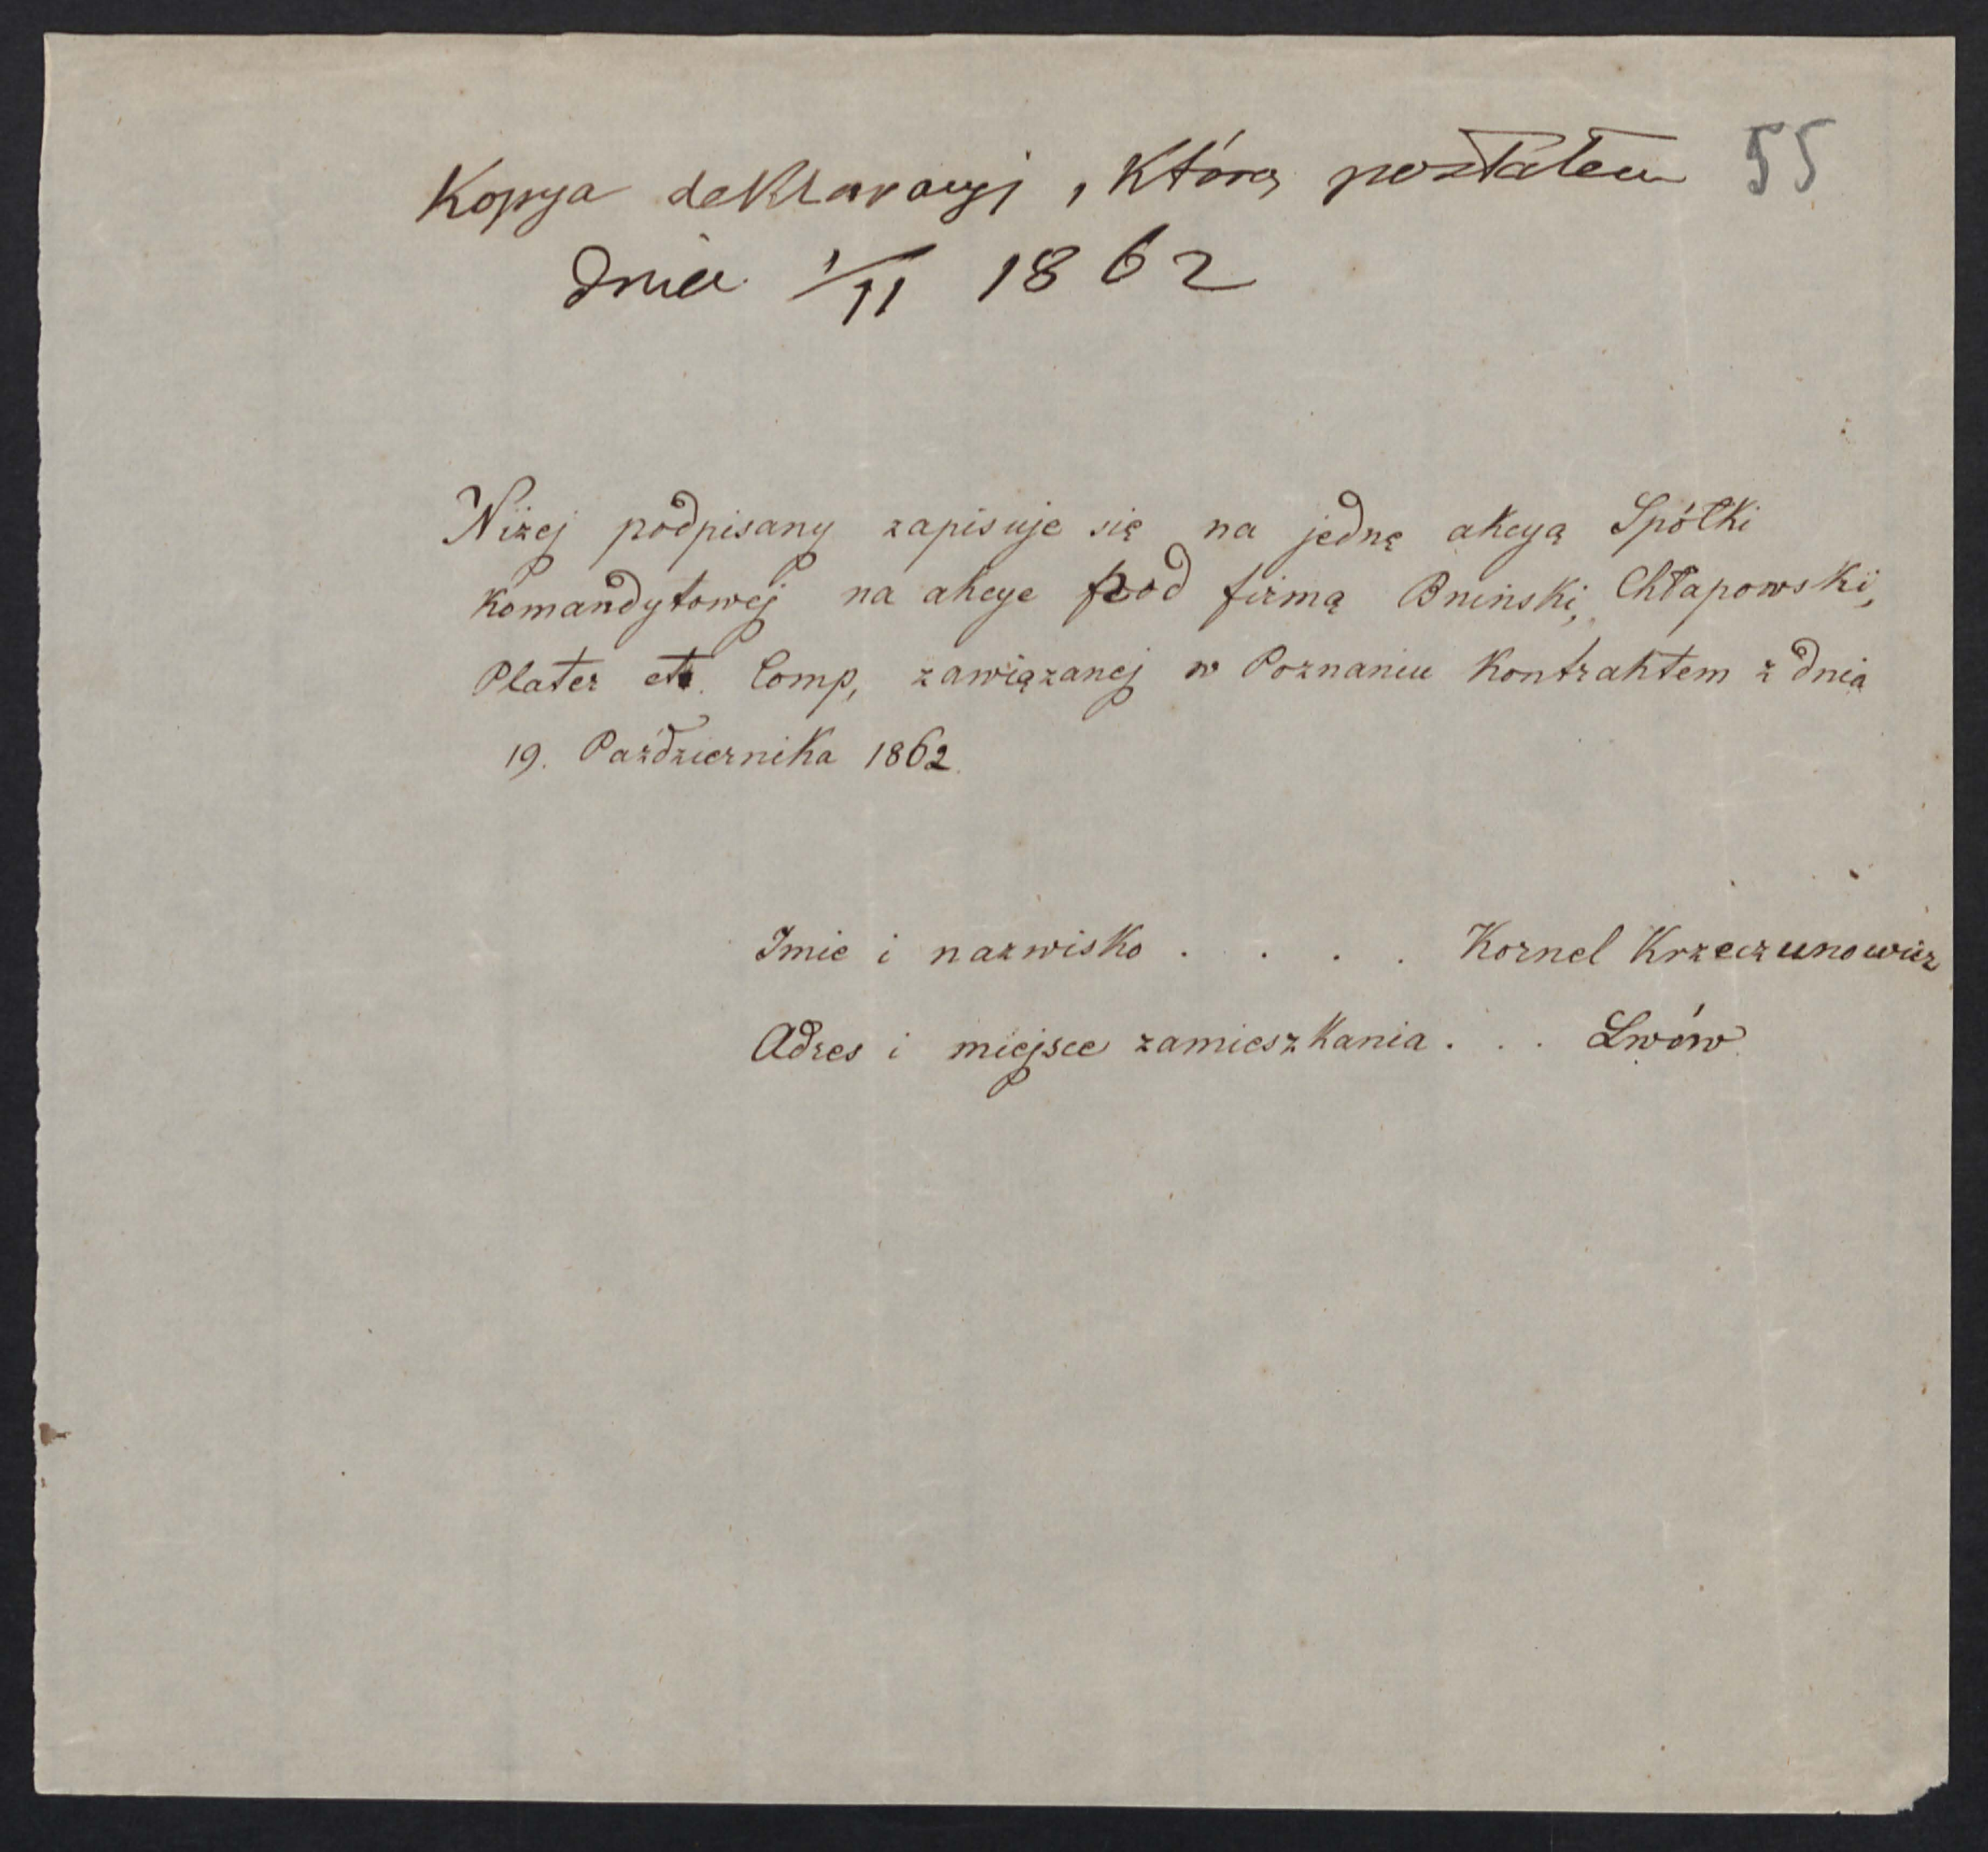 55
Kopya deklaracyi, którą posłałem
dnia 1/11 1862
Niżej podpisany zapisuje się na jednę akcyą Spółki
Komandytowej na akcye pod firmą Bniński, Chłapowski,
Plater et Comp, zawiązanej w Poznaniu Kontraktem z dnia
19. Października 1862.
Imie i nazwisko . . . . Kornel Krzeczunowicz
Adres i miejsce zamieszkania . . . Lwów